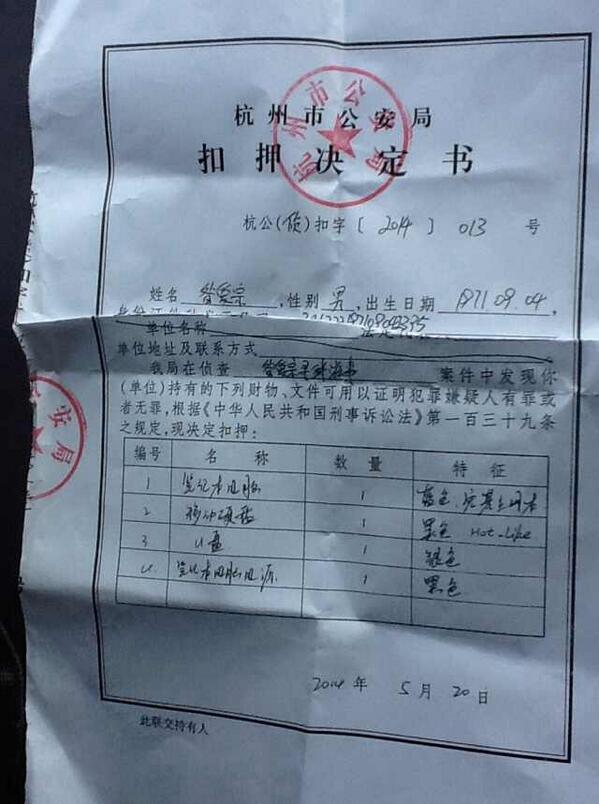 杭州市公安局
扣押决定书
杭公(侦)扣字〔2014〕013号
姓名 ,性别男,出生日期1971.09.04,
单位名称
单位地址及联系方式
我局在侦查 案件中发现你
(单位)持有的下列财物、文件可用以证明犯罪嫌疑人有罪或
者无罪,根据《中华人民共和国刑事诉讼法》第一百三十九条
之规定,现决定扣押:
编号 名称 数量 特征
1 笔记本电脑 1 蓝色、宏基上网本
2 移动硬盘 1 黑色 Hot-Like
3 U盘 1 银色
4 笔记本电脑电源 1 黑色
2014年5月20日
此联交持有人
杭州市公安局
安局